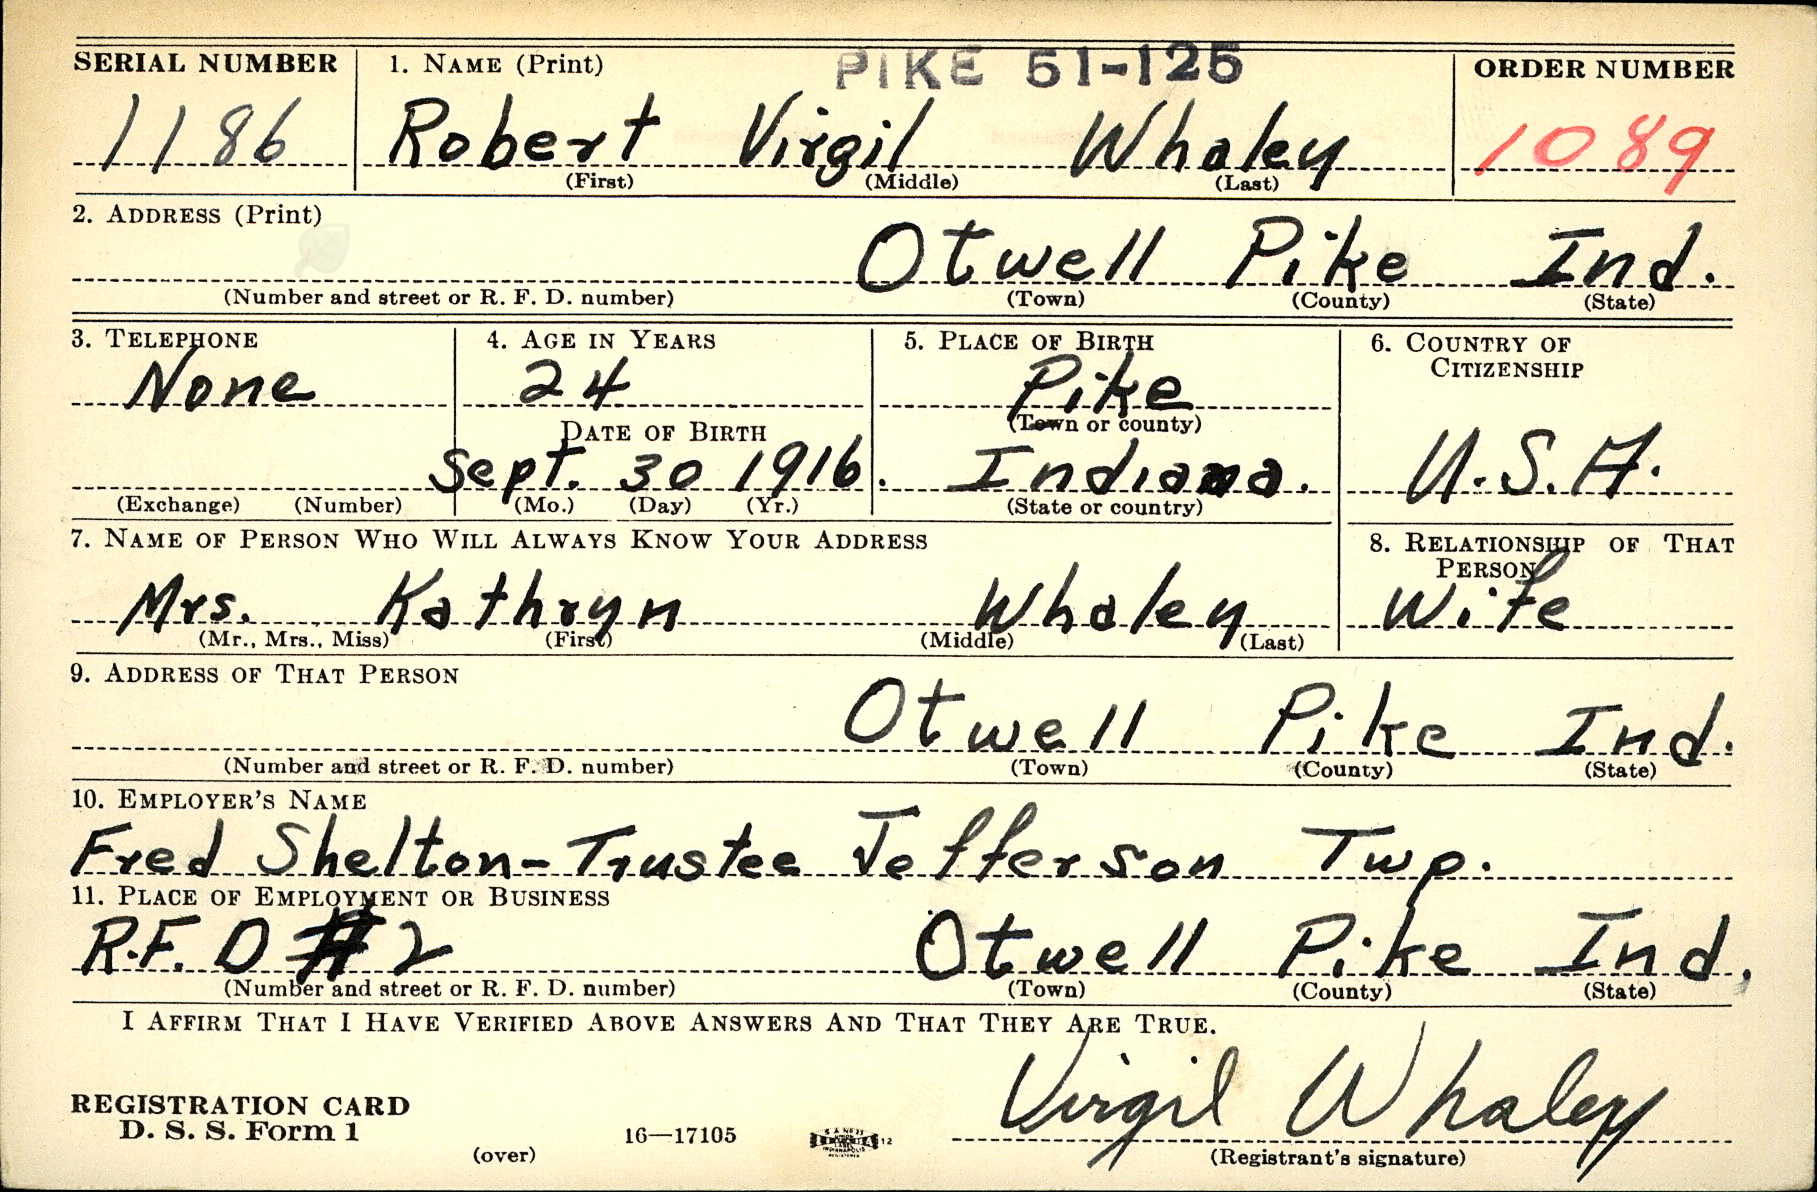 SERIAL NUMBER 1. NAME (Print) PIKE 51-125 ORDER NUMBER
1186 Robert Virgil Whaley 1089
(First) (Middle) (Last)
2. ADDRESS (Print)
Otwell Pike Ind.
(Number and street or R. F. D. number) (Town) (County) (State)
3. TELEPHONE 4. AGE IN YEARS 5. PLACE OF BIRTH 6. COUNTRY OF CITIZENSHIP
None 24 Pike
(Town or county)
DATE OF BIRTH
Sept. 30 1916. Indiana. U.S.A.
(Exchange) (Number) (Mo.) (Day) (Yr.) (State or country)
7. NAME OF PERSON WHO WILL ALWAYS KNOW YOUR ADDRESS 8. RELATIONSHIP OF THAT PERSON
Mrs. Kathryn Whaley Wife
(Mr., Mrs., Miss) (First) (Middle) (Last)
9. ADDRESS OF THAT PERSON
Otwell Pike Ind.
(Number and street or R. F. D. number) (Town) (County) (State)
10. EMPLOYER'S NAME
Fred Shelton-Trustee Jefferson Twp.
11. PLACE OF EMPLOYMENT OR BUSINESS
R.F.D #2 Otwell Pike Ind.
(Number and street or R. F. D. number) (Town) (County) (State)
I AFFIRM THAT I HAVE VERIFIED ABOVE ANSWERS AND THAT THEY ARE TRUE.
Virgil Whaley
REGISTRATION CARD
D. S. S. Form 1 16—17105 12
(over) (Registrant's signature)